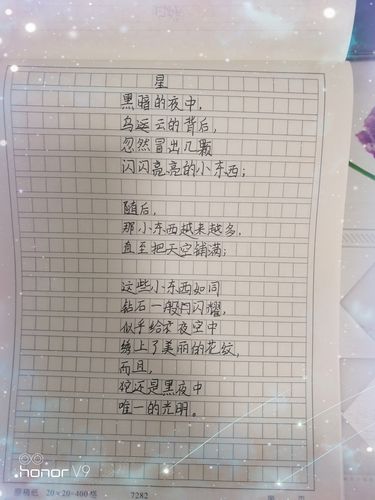 星
黑暗的夜中，
乌运云的背后，
忽然冒出几颗
闪闪亮亮的小东西；
随后，
那小东西越来越多，
直至把天空铺满；
这些小东西如同
钻石一般闪耀，
似乎给夜空中
绣上了美丽的花纹，
而且，
它还是黑夜中
唯一的光明。
原稿纸 20×20=400格 7282
honor V9